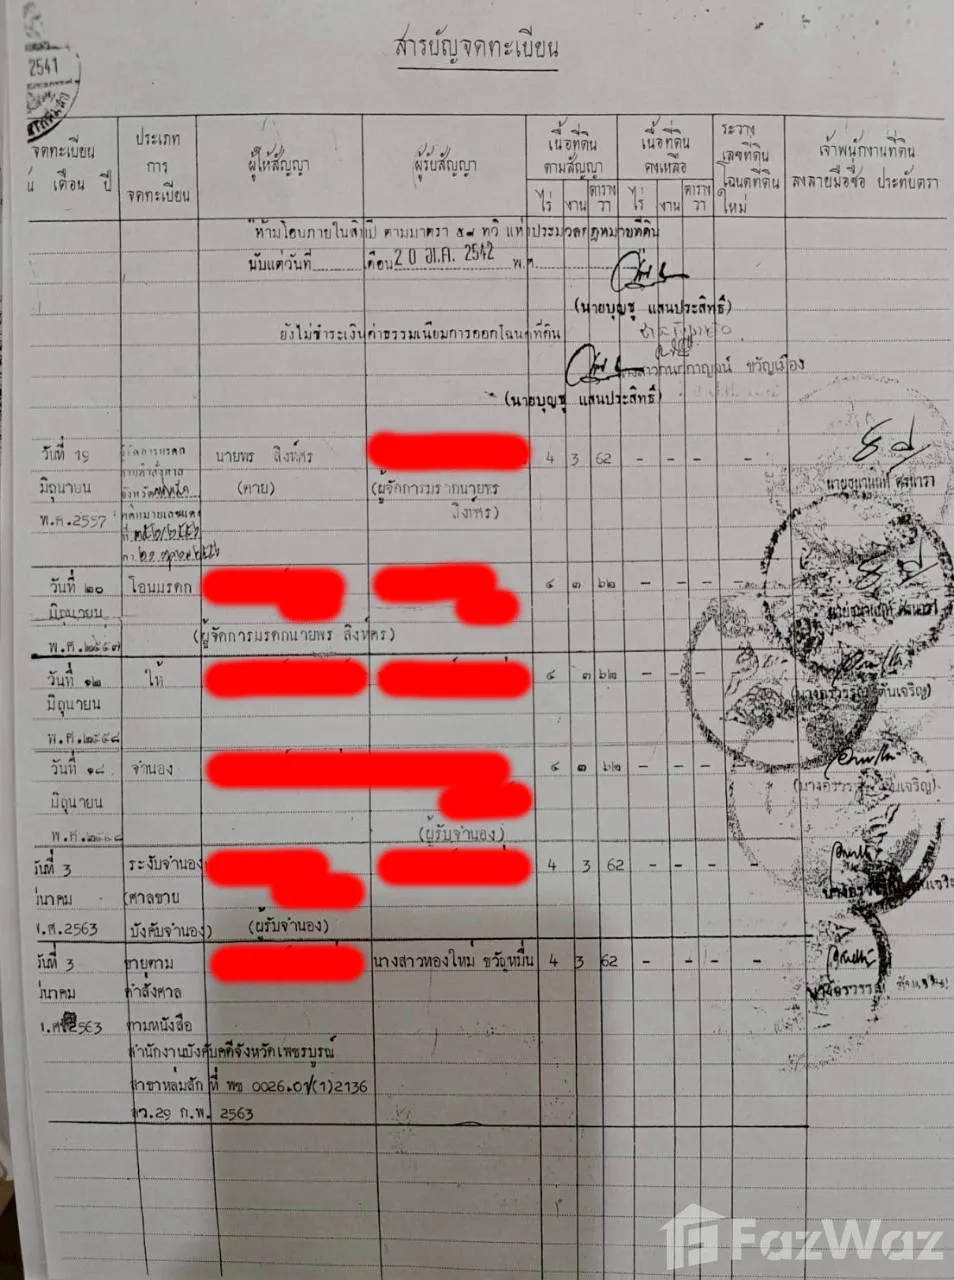 สารบัญจดทะเบียน
2541
จดทะเบียน
เดือน ปี
ประเภท
การ
จดทะเบียน
ผู้ให้สัญญา
ผู้รับสัญญา
เนื้อที่ดิน
ตามสัญญา
ไร่ งาน ตารางวา
เนื้อที่ดิน
คงเหลือ
ไร่ งาน ตารางวา
ระวาง
เลขที่ดิน
โฉนดที่ดิน
ใหม่
เจ้าพนักงานที่ดิน
ลงลายมือชื่อ ประทับตรา
ห้ามโอนภายในสิบปี ตามมาตรา ๕๘ ทวิ แห่งประมวลกฎหมายที่ดิน
นับแต่วันที่ เดือน 20 พ.ศ. 2542
(นายบุญชู แสนประสิทธิ์)
ยังไม่ชำระเงินค่าธรรมเนียมการออกโฉนดที่ดิน
ขวัญเมือง
(นายบุญชู แสนประสิทธิ์)
วันที่ 19 ผู้จัดการมรดก นายพร สิงห์ศร 4 3 62 - - - -
มิถุนายน ตามคำสั่งศาล (ตาย) (ผู้จัดการมรดกนายพร
พ.ศ.2557 จังหวัด สิงห์ศร)
วันที่ ๒๐ โอนมรดก ๔ ๓ ๖๒ - - - -
มิถุนายน (ผู้จัดการมรดกนายพร สิงห์ศร)
พ.ศ.๒๕๕๗
วันที่ ๑๒ ให้ ๔ ๓ ๖๒ - - -
มิถุนายน
พ.ศ.๒๕๕๘
วันที่ ๑๘ จำนอง ๔ ๓ ๖๒ - - - -
มิถุนายน
พ.ศ.๒๕๕๘ (ผู้รับจำนอง)
วันที่ 3 ระงับจำนอง 4 3 62 - - - -
มีนาคม (ศาลขาย
พ.ศ.2563 บังคับจำนอง) (ผู้รับจำนอง)
วันที่ 3 ขายตาม นางสาวทองใหม่ ขวัญหมื่น 4 3 62 - - - -
มีนาคม คำสั่งศาล
พ.ศ.2563 ตามหนังสือ
สำนักงานบังคับคดีจังหวัดเพชรบูรณ์
สาขาหล่มสัก ที่ พช 0026.01(1)2136
ลว.29 ก.พ. 2563
FazWaz